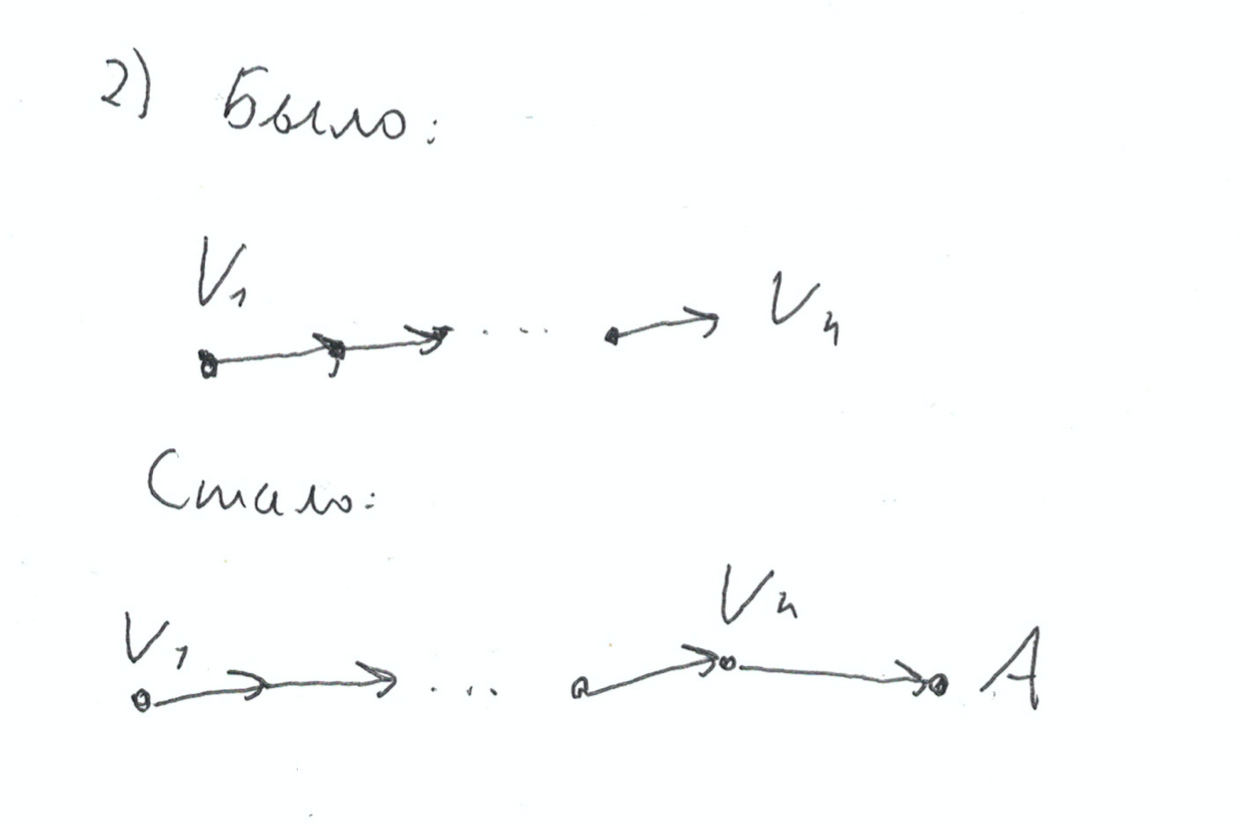 2) Было:
V₁ ... Vₙ
Стало:
V₁ ... Vₙ A